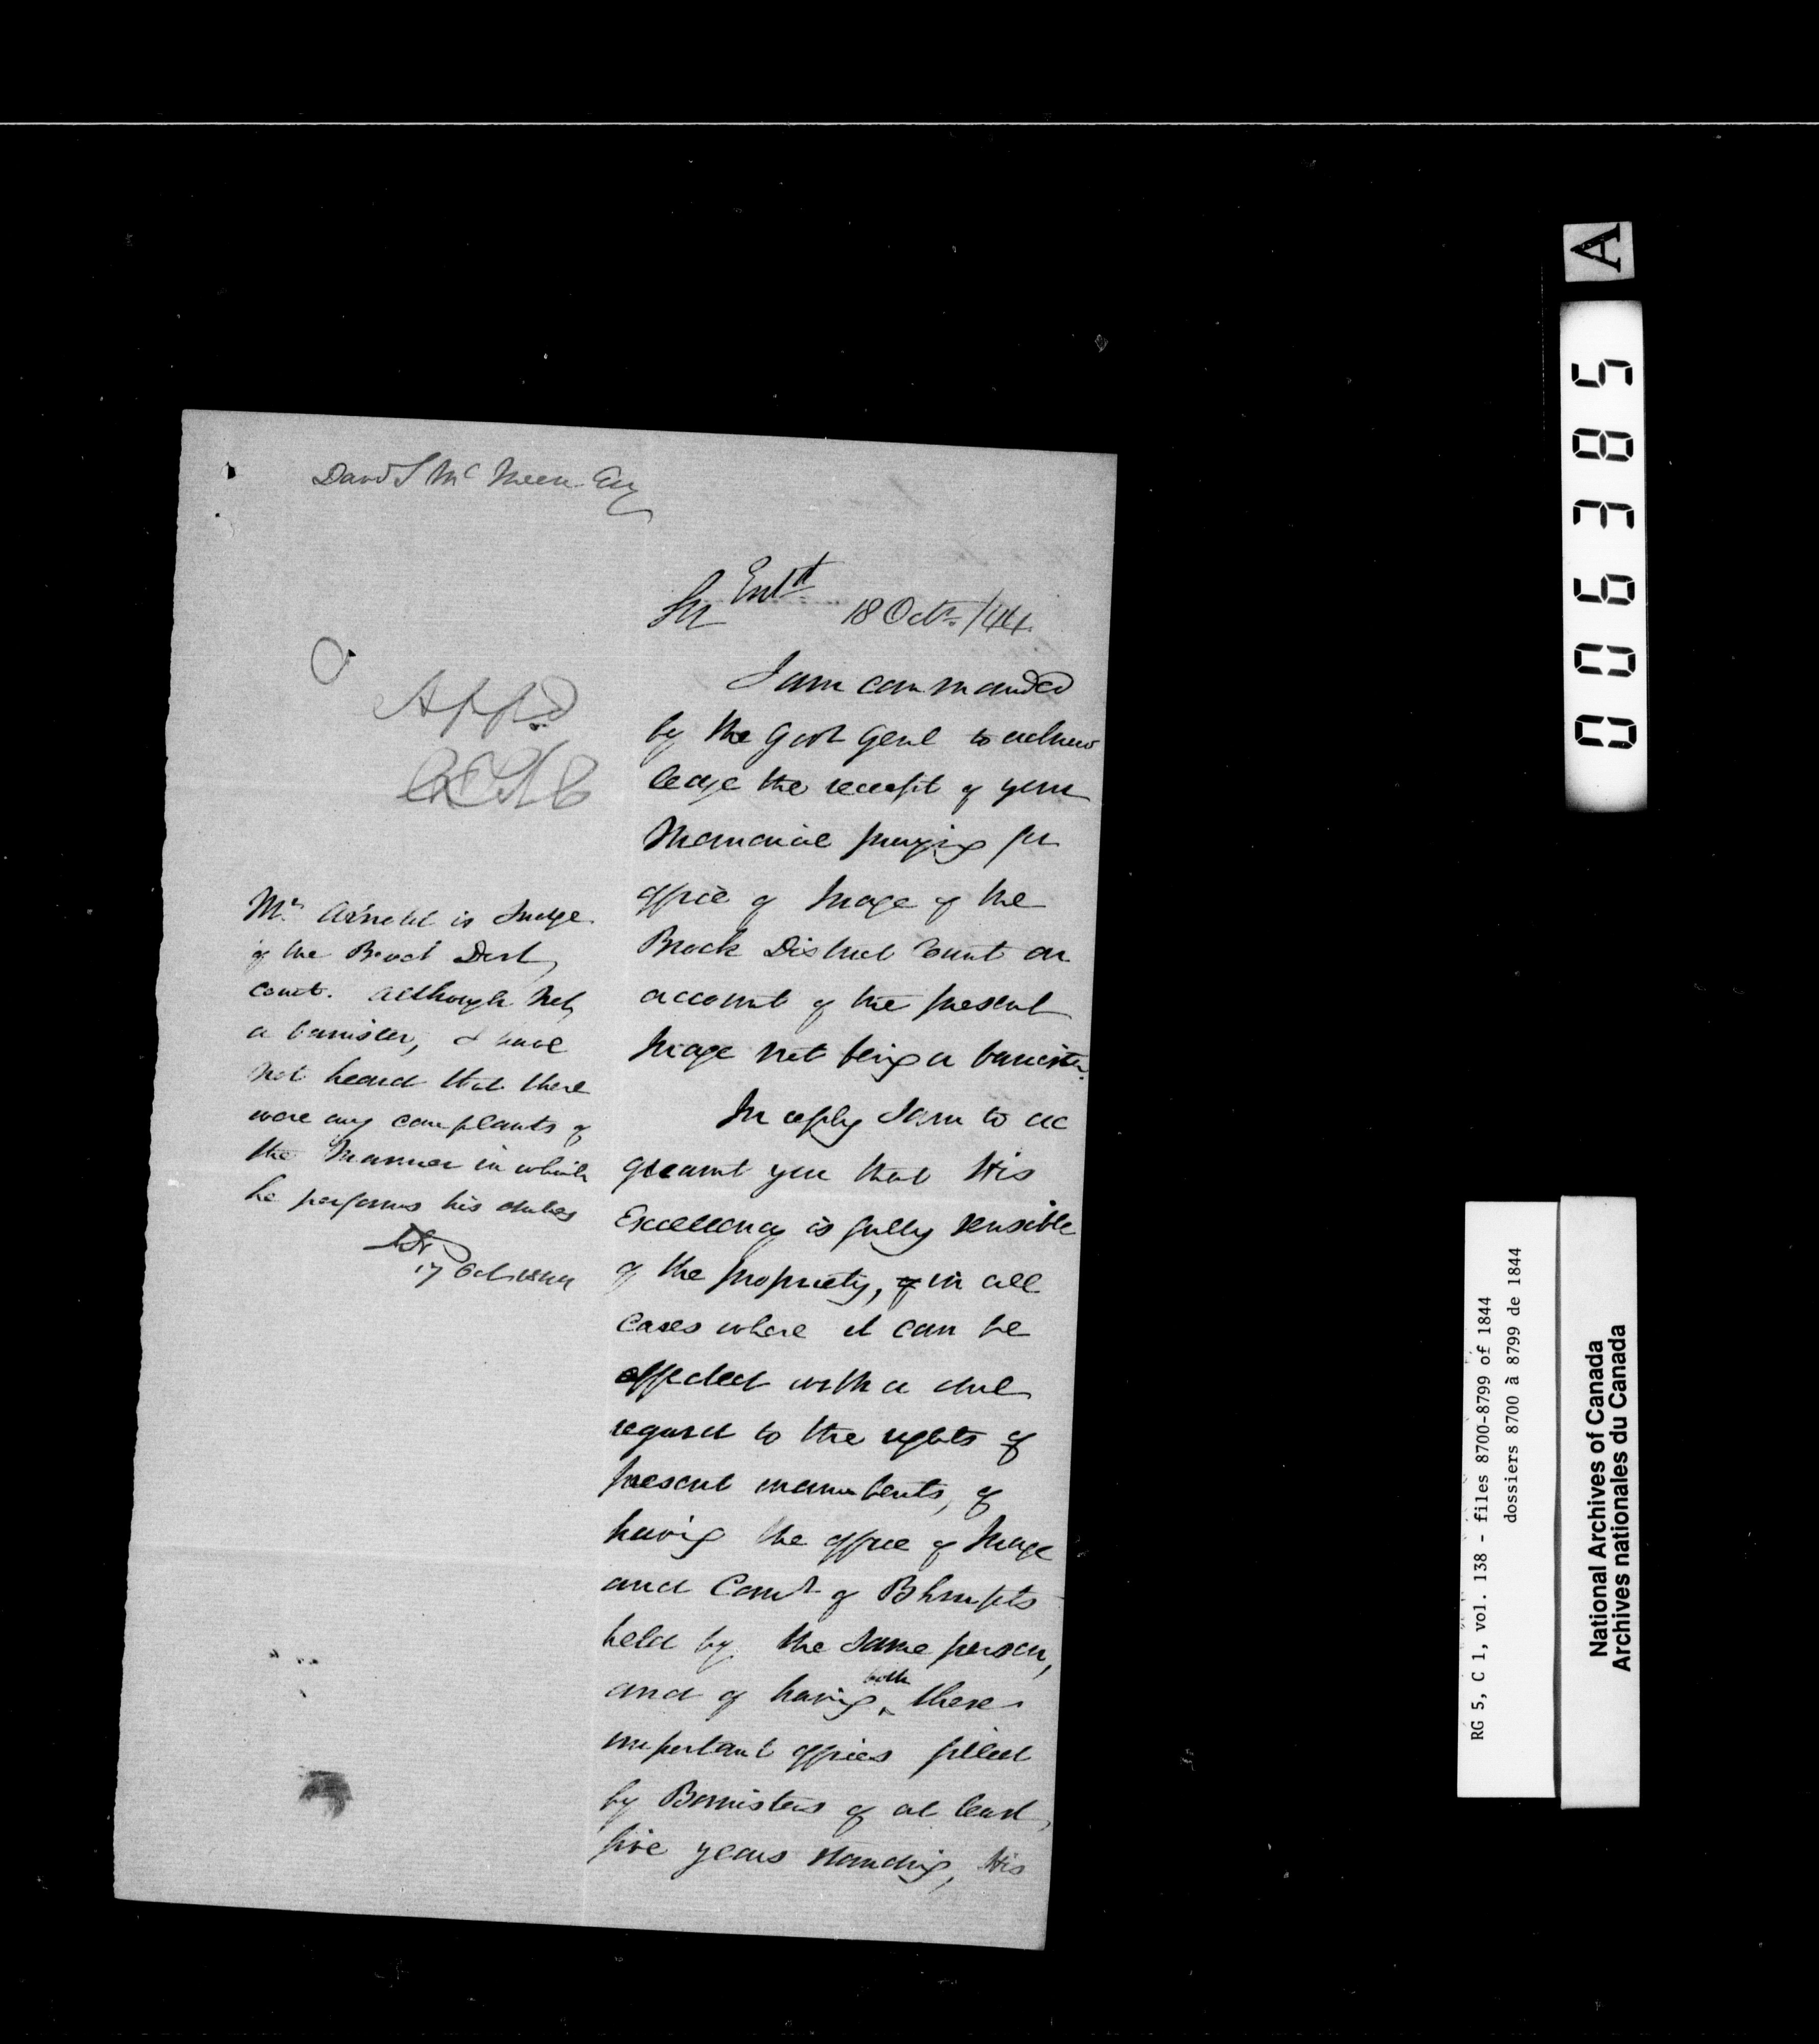 David S McQueen Esq
Entd
Sir 18 Octr./44.
I am commanded
by the Govr Genl to acknow
ledge the receipt of your
Memorial praying for
office of Judge of the
Brock District Court on
account of the present
Judge not being a barrister.
In reply I am to ac
quaint you that His
Excellency is fully sensible
of the propriety, in all
cases where it can be
effected with a due
regard to the rights of
present incumbents, of
having the office of Judge
and Comr of Bkrupts
held by the same person,
and of having both these
important offices filled
by Barristers of at least
five years standing, His
Appd
Mr. Arnold is Judge
of the Brock Dist
Court. Although not
a barrister, I have
not heard that there
were any complaints of
the manner in which
he performs his duties
17 Oct 1844
A
006385
RG 5, C 1, vol. 138 - files 8700-8799 of 1844
dossiers 8700 à 8799 de 1844
National Archives of Canada
Archives nationales du Canada